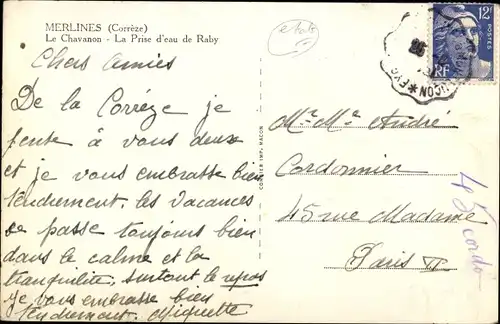 MERLINES (Corrèze)
Le Chavanon - La Prise d'eau de Raby
Chers Amies
De la Corrèze je
pense à vous deux
et je vous embrasse bien
tendrement. les vacances
se passe toujours bien
dans le calme et la
tranquilité, surtout le repos
je vous embrasse bien
tendrement. Miquette
COMBIER IMP. MACON
12F
POSTES
RF
Mr. Me André
Cordonnier
45 rue Madame
Paris VI